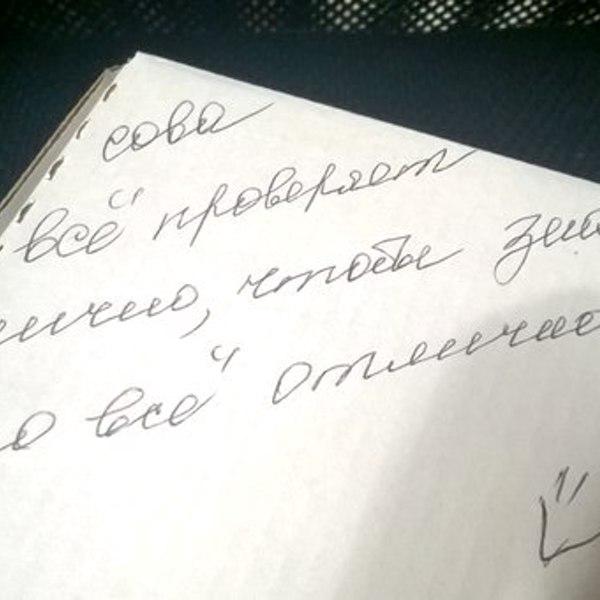 сова
всё проверяет
лично, чтобы
всё отлично